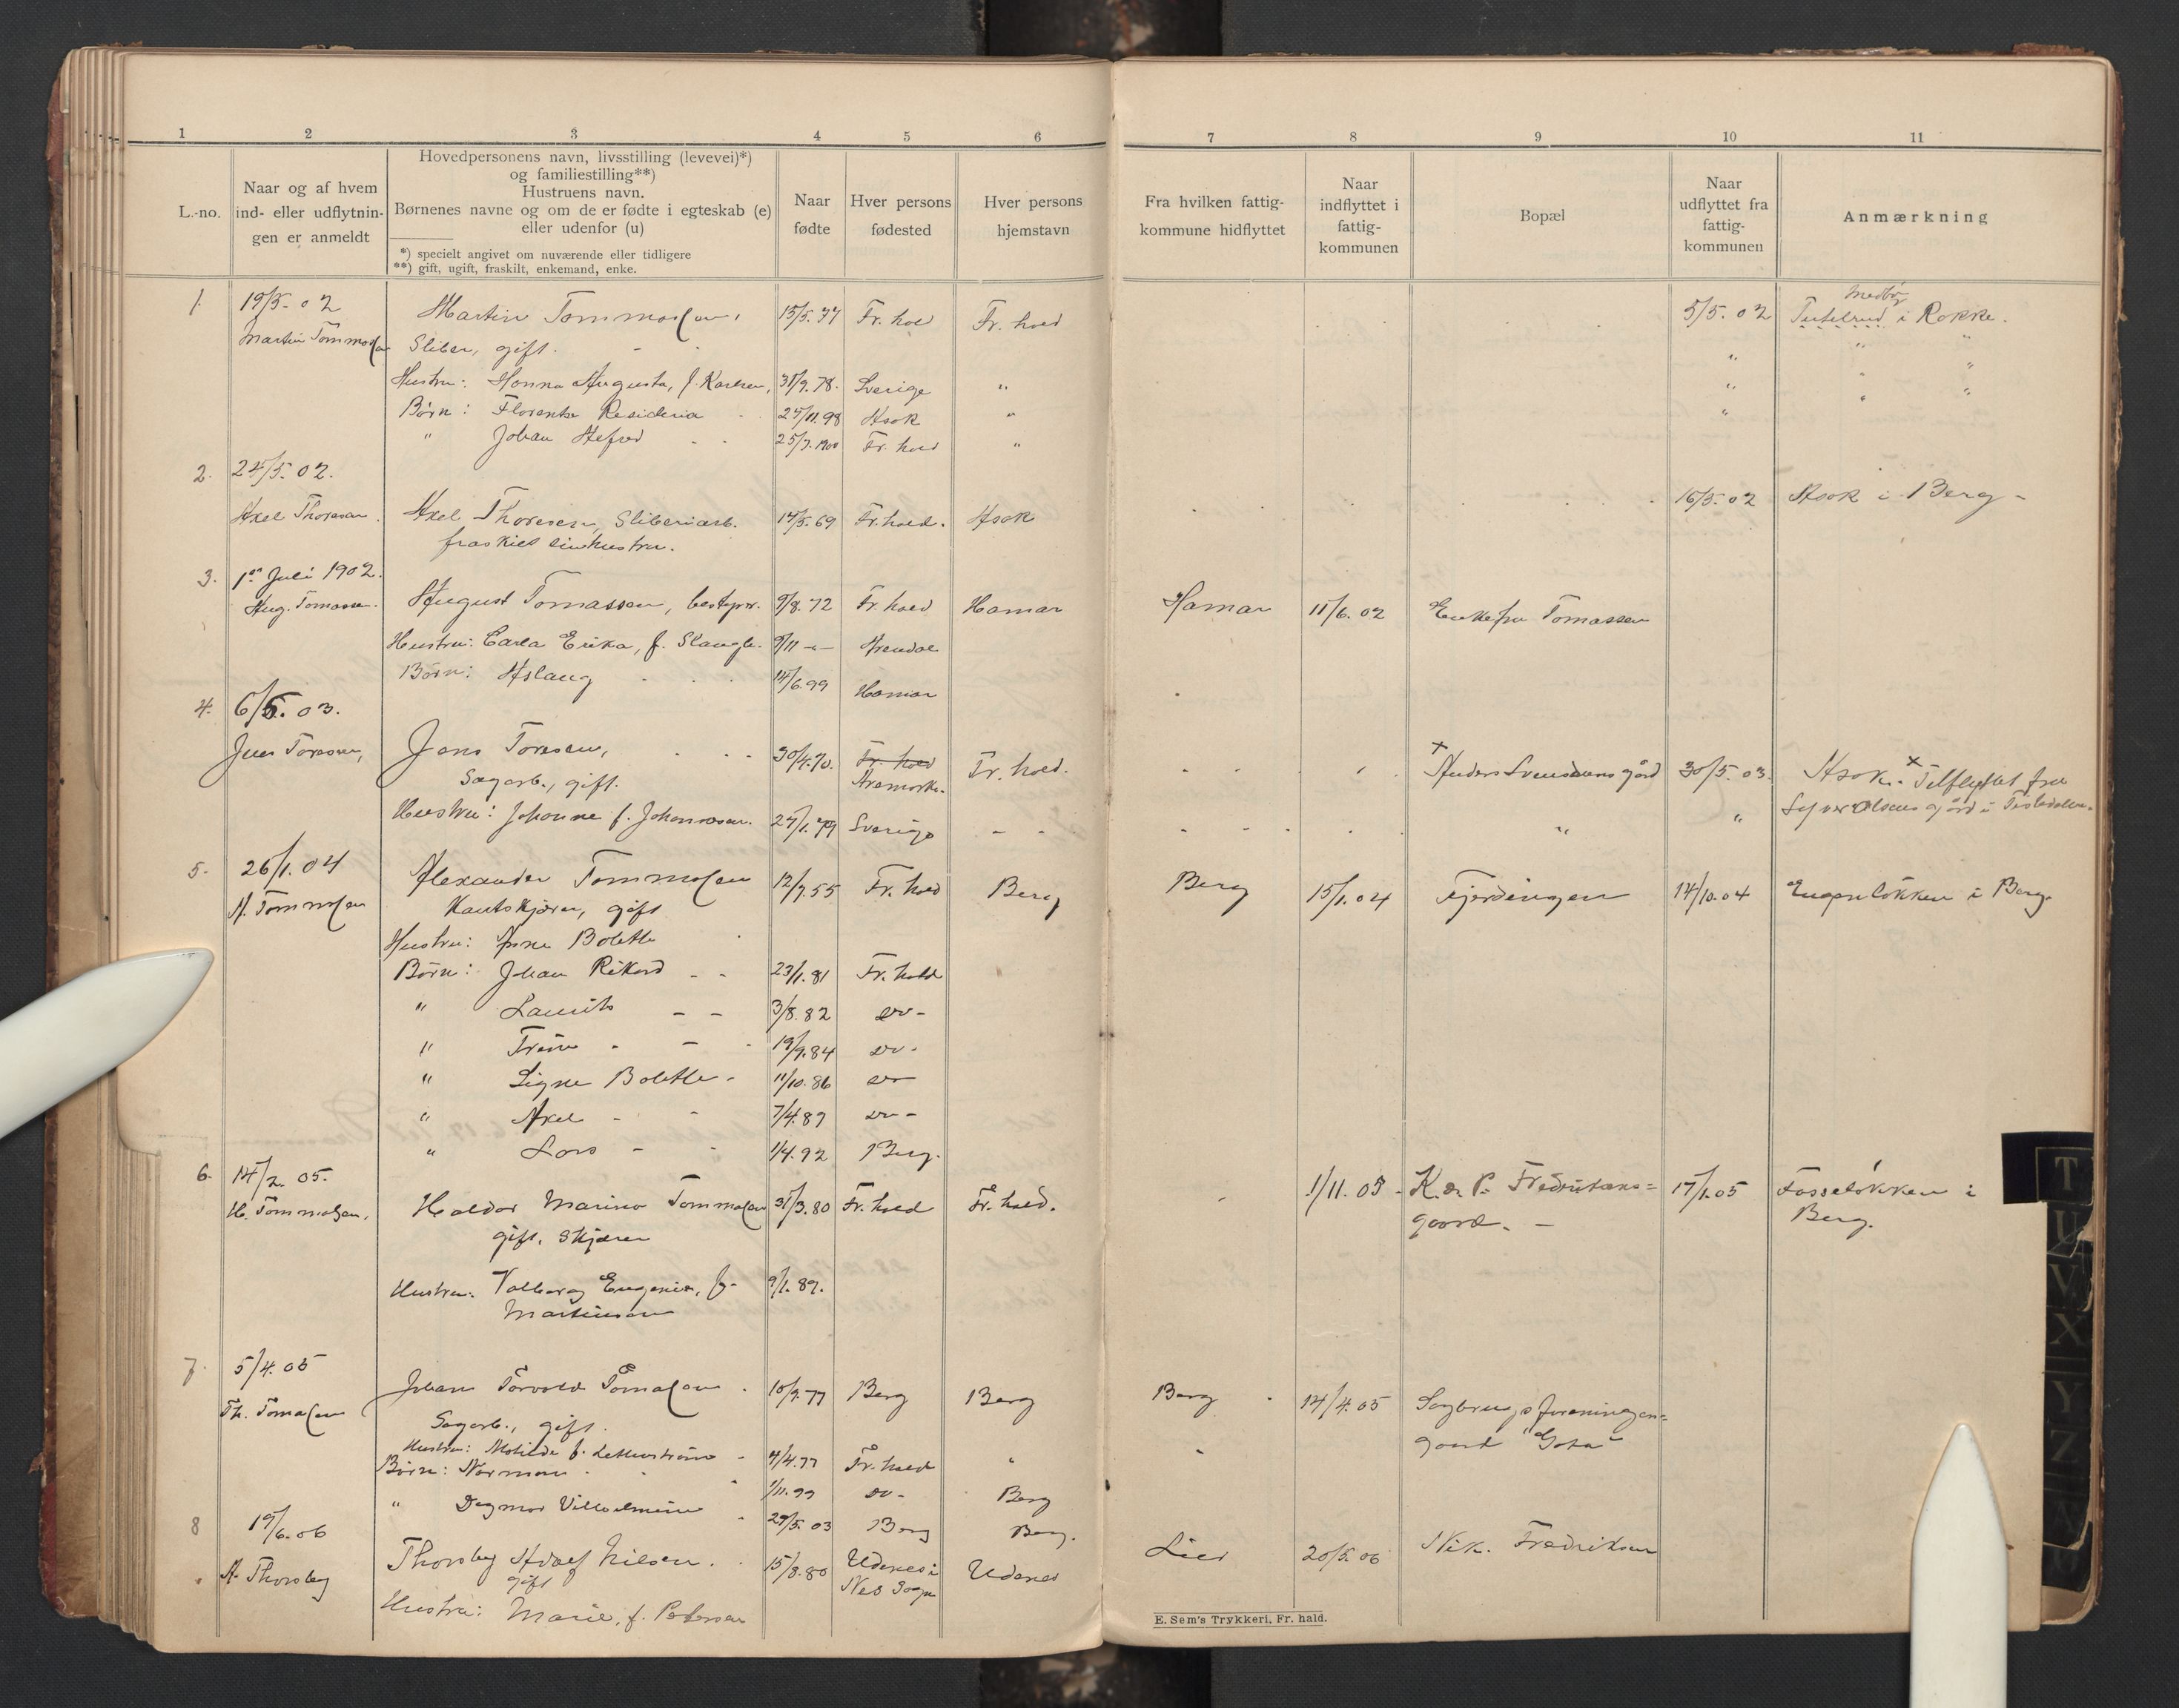 1 2 3 4 5 6 7 8 9 10 11
L.-no.
Naar og af hvem
ind- eller udflytnin-
gen er anmeldt
Hovedpersonens navn, livsstilling (levevei)*)
og familiestilling**)
Hustruens navn.
Børnenes navne og om de er fødte i egteskab (e)
eller udenfor (u)
*) specielt angivet om nuværende eller tidligere
**) gift, ugift, fraskilt, enkemand, enke.
Naar
fødte
Hver persons
fødested
Hver persons
hjemstavn
Fra hvilken fattig-
kommune hidflyttet
Naar
indflyttet i
fattig-
kommunen
Bopæl
Naar
udflyttet fra
fattig-
kommunen
Anmærkning
1. 19/5. 02
Martin Tommosen Martin Tommosen, 15/5. 77 Fr. hald Fr. hald 5/5. 02 i Rokke.
Sliber, gift.
Hustru: Augusta, f. Karlsen, 31/9. 78. Sverige "
Børn: 24/11.98 Asak "
" Johan Alfred 25/7.1900 Fr. hald "
2. 24/5. 02.
Axel Thoresen. Axel Thoresen, Sliberiarb. 14/5. 69 Fr. hald. Asak 16/5. 02 Asak i Berg
fraskilt sin hustru.
3. 1ste Juli 1902.
Aug. Tomassen. August Tomassen, bestyrer. 9/8. 72 Fr. hald Hamar Hamar 11/6. 02 Enkefru Tomassen
Hustru: Carla Erika, f. 9/11 -"- Arendal
Børn: Aslaug 14/6.99 Hamar
4. 6/5. 03.
Jens Toresen, Jens Toresen, 30/4.70. Fr. hald Fr. hald. × Anders Svendsens gård 30/5. 03. Asak. × Tilflyttet fra
Sagarb., gift. Aremark.
Hustru: Johanne f. Johannesen. 27/1.79 Sverige " " gård i Tistedalen.
5. 26/1. 04
A. Tommosen Alexander Tommosen 12/7.55 Fr. hald Berg Berg 15/1.04 Fjerdingen 14/10.04 Engenløkken i Berg.
Kantskjærer, gift
Hustru: Anne Bolette
Børn: Johan Rikard 23/1.81 Fr. hald
" Laurits 3/8. 82 do-
" 19/9.84 do-
" Signe Bolette 11/10.86 do
" Axel 7/4.89 do-
" Lars 1/4.92 Berg.
6. 14/2. 05.
H. Tommosen. Haldor Marino Tommosen 31/3.80 Fr. hald Fr. hald. 1/11. 05 Fredriksens=
gift. Skjærer gaard. 17/1.05 Fosseløkken i
Berg.
Hustru: Valborg Eugenie, f. 9/1. 89.
Martinsen
7. 5/4. 05
Th. Tomasen Johan Torvald Tomasen 10/9.77 Berg Berg Berg 14/4.05 Sagbrugsforeningens=
Sagarb., gift. gaard "Gota"
Hustru: Matilde f. 4/4.77 Fr. hald "
Børn: Norman 1/11.99 do- Berg
" Dagmar Vilhelmine 29/5. 03 Berg Berg.
8 19/6.06
A. Thorsby Thorsby Adolf Nilsen. 15/8.80 Udenes i Udenes Lier 20/5. 06 Nik. Fredriksen
gift Nes Sogn
Hustru: Marie, f. Petersen
E. Sem's Trykkeri, Fr. hald.
T
U
V
X
Y
Z